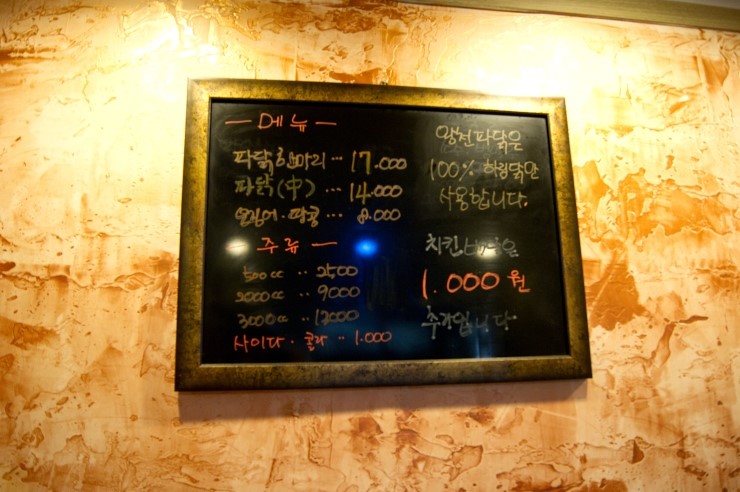 — 메뉴 —
파닭한마리 ··· 17.000
파닭(中) ··· 14.000
오징어·땅콩 ··· 8.000
— 주류 —
500cc ·· 2500
2000cc ·· 9000
3000cc ·· 12000
사이다 · 콜라 ·· 1.000
왕천파닭은
100% 하림닭만
사용합니다.
치킨
1.000원
추가입니다.